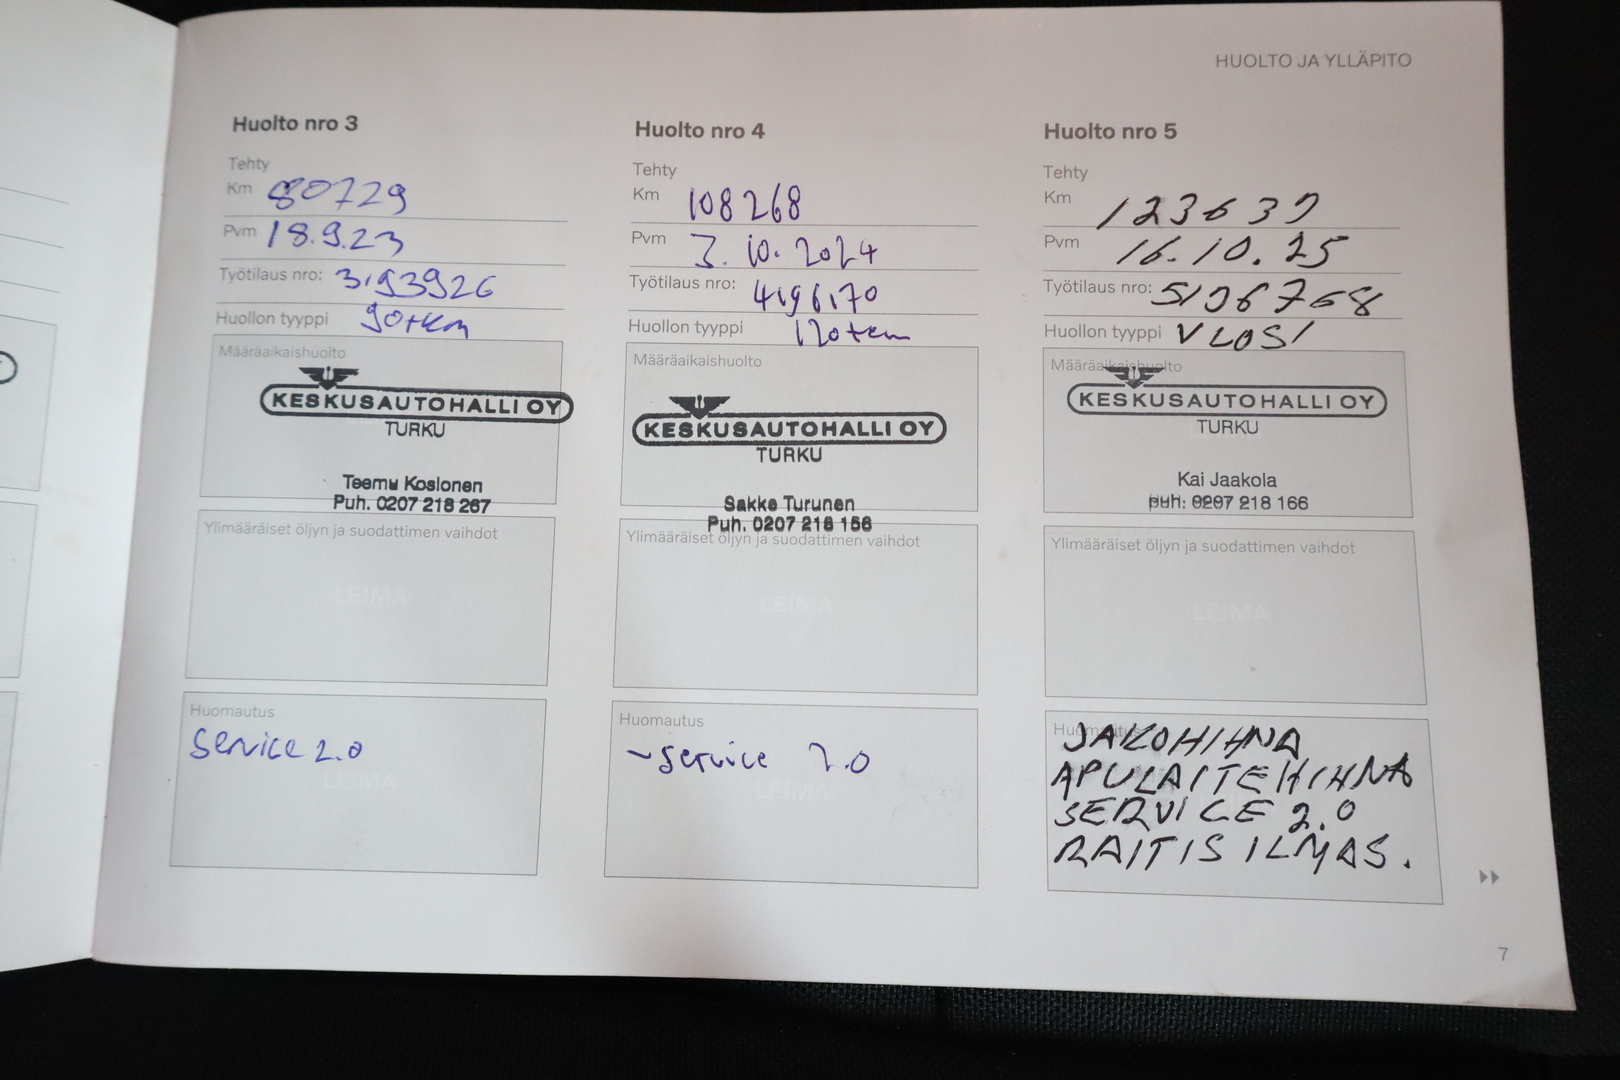 HUOLTO JA YLLÄPITO
Huolto nro 3
Tehty
Km 80729
Pvm 18.9.23
Työtilaus nro: 3193926
Huollon tyyppi 90tkm
Määräaikaishuolto
KESKUSAUTOHALLI OY
TURKU
Teemu Koslonen
Puh. 0207 218 267
Ylimääräiset öljyn ja suodattimen vaihdot
LEIMA
Huomautus
Service 2.0
LEIMA
Huolto nro 4
Tehty
Km 108268
Pvm 3.10.2024
Työtilaus nro: 4196170
Huollon tyyppi 120tkm
Määräaikaishuolto
KESKUSAUTOHALLI OY
TURKU
Sakke Turunen
Puh. 0207 218 156
Ylimääräiset öljyn ja suodattimen vaihdot
LEIMA
Huomautus
~service 2.0
LEIMA
Huolto nro 5
Tehty
Km 123637
Pvm 16.10.25
Työtilaus nro: 5106768
Huollon tyyppi VLOSI
Määräaikaishuolto
KESKUSAUTOHALLI OY
TURKU
Kai Jaakola
puh: 0207 218 166
Ylimääräiset öljyn ja suodattimen vaihdot
LEIMA
Huomautus
JAKOHIHNA
APULAITEHIHNA
SERVICE 2.0
RAITIS ILMAS.
7